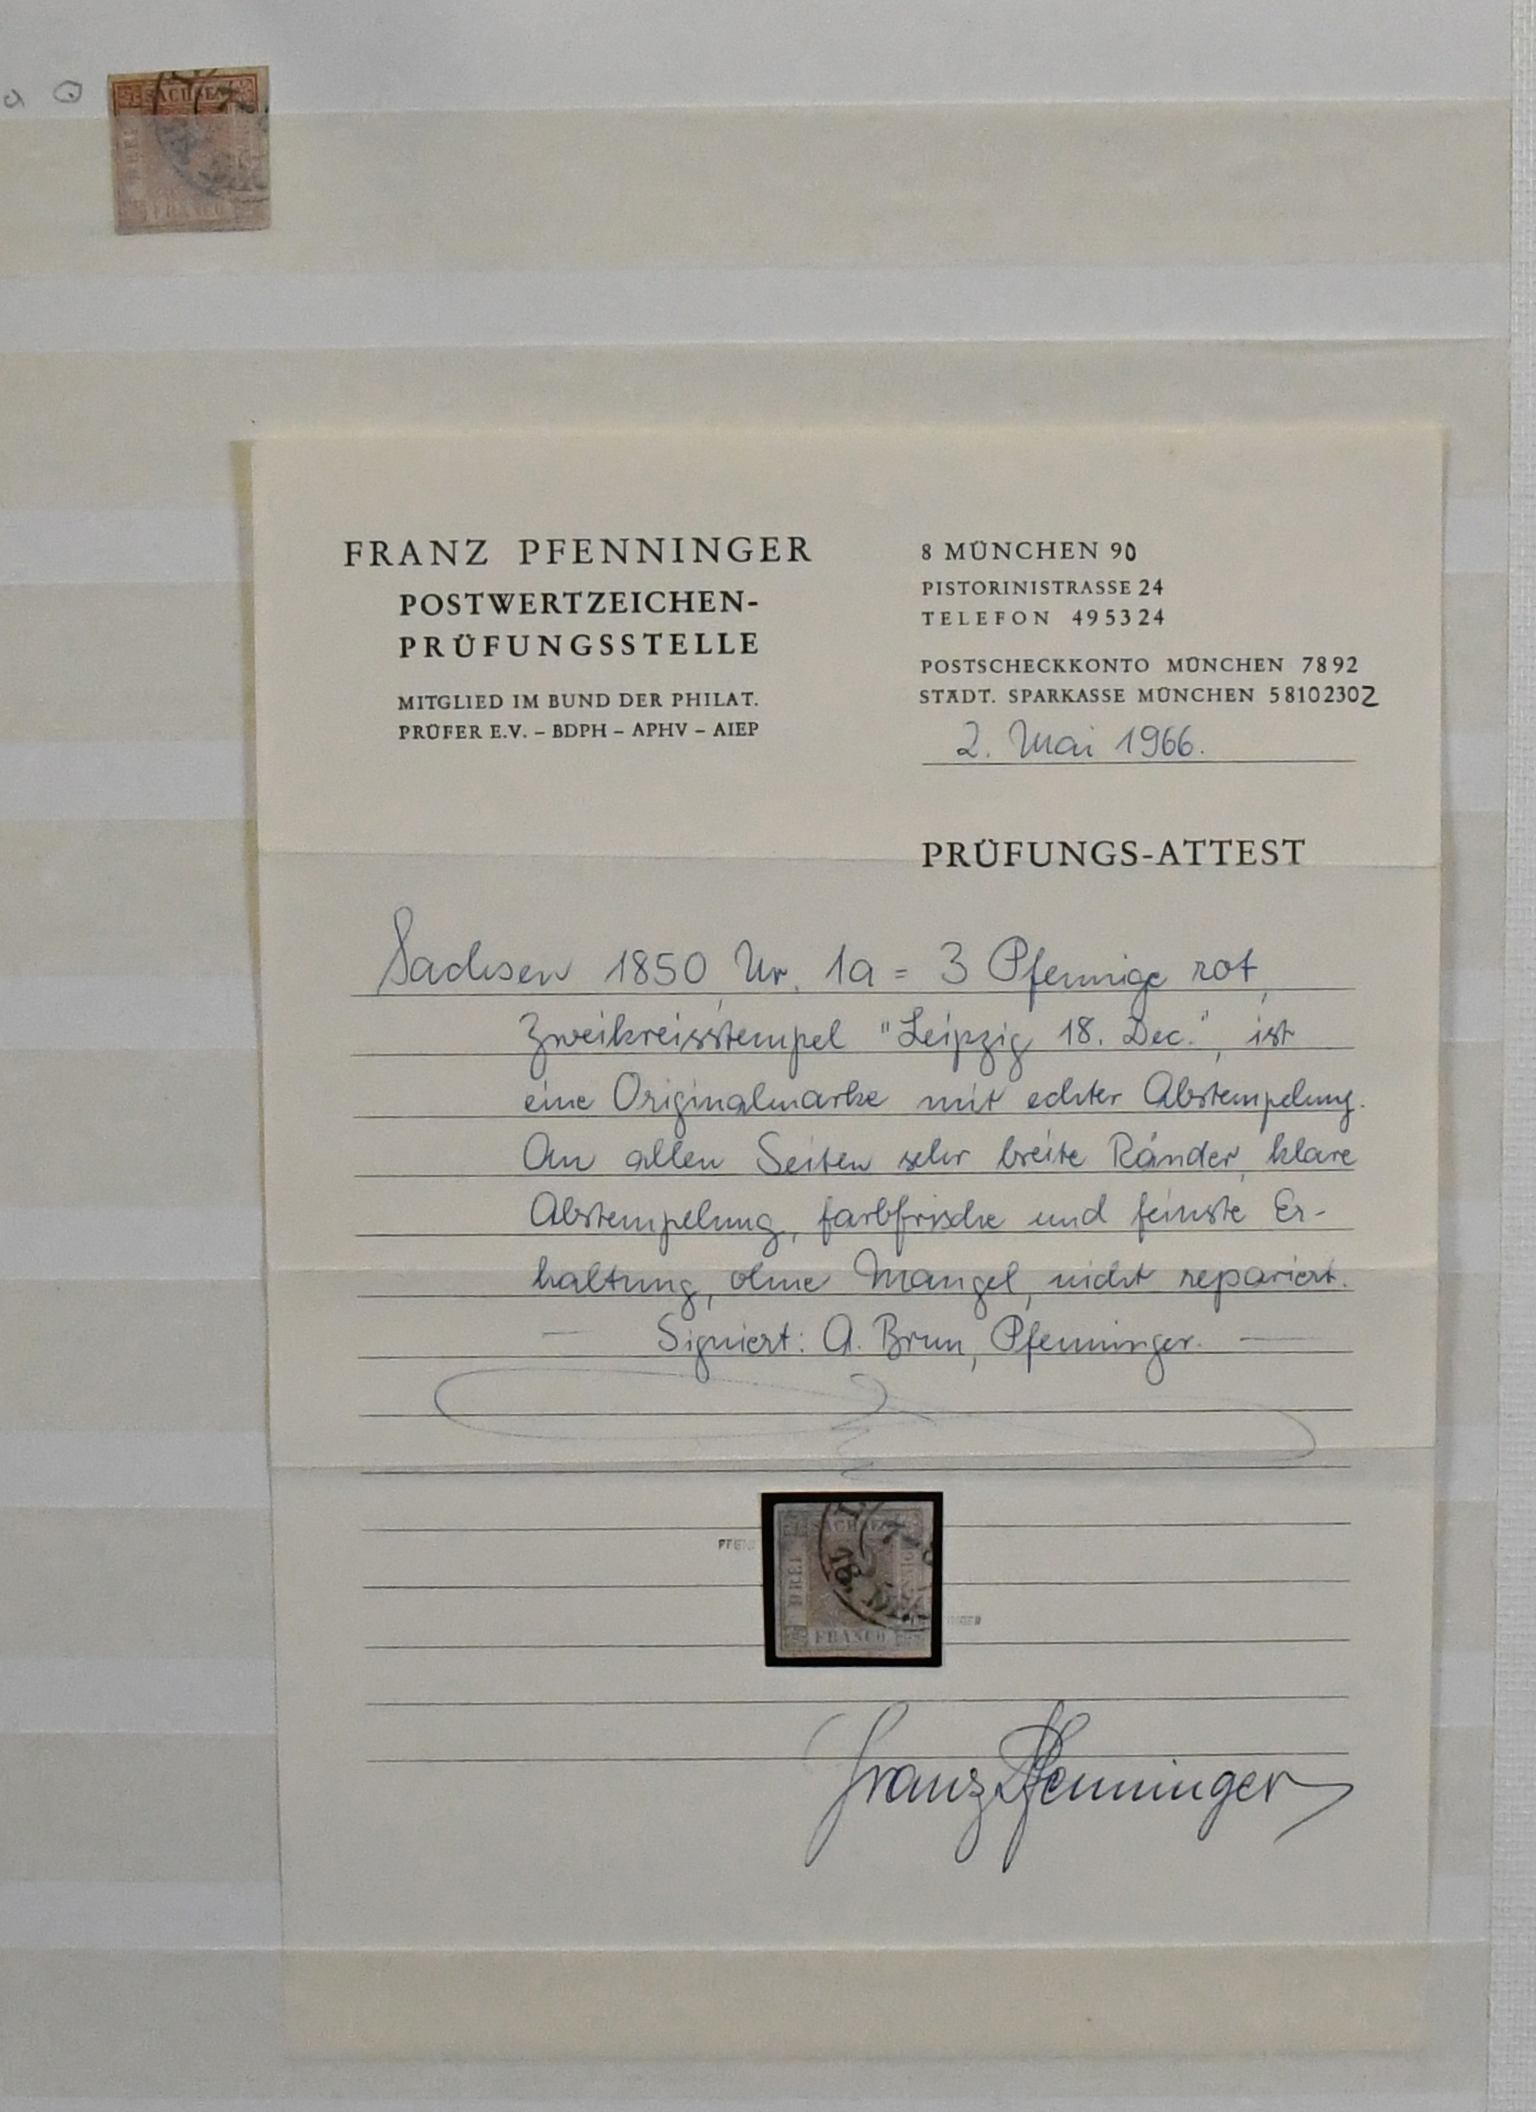 a
SACHSEN
DREI
FRANCO
FRANZ PFENNINGER
POSTWERTZEICHEN-
PRÜFUNGSSTELLE
MITGLIED IM BUND DER PHILAT.
PRÜFER E.V. – BDPH – APHV – AIEP
8 MÜNCHEN 90
PISTORINISTRASSE 24
TELEFON 495324
POSTSCHECKKONTO MÜNCHEN 7892
STÄDT. SPARKASSE MÜNCHEN 58102302
2. Mai 1966.
PRÜFUNGS-ATTEST
Sachsen 1850 Nr. 1a = 3 Pfennige rot,
Zweikreisstempel "Leipzig 18. Dec.", ist
eine Originalmarke mit echter Abstempelung.
An allen Seiten sehr breite Ränder, klare
Abstempelung, farbfrische und feinste Er-
haltung, ohne Mängel, nicht repariert.
— Signiert: A. Brun, Pfenninger. —
SACHSEN
DREI
18
FRANCO
Franz Pfenninger